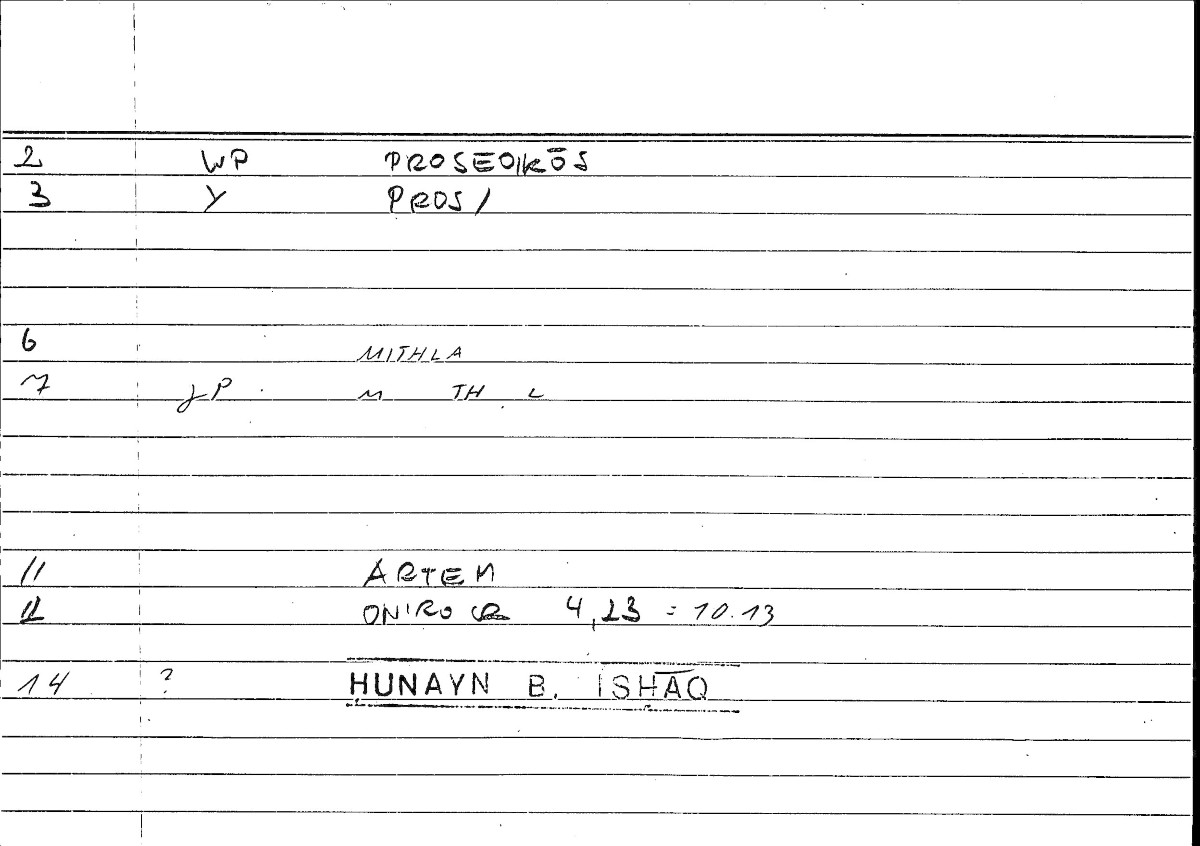 2 WP PROSEOIKŌS
3 Y PROS/
6 MITHLA
7 JP M TH L
11 ARTEM
12 ONIROCR 4,23 = 10.13
14 ? ḤUNAYN B. ISḤĀQ